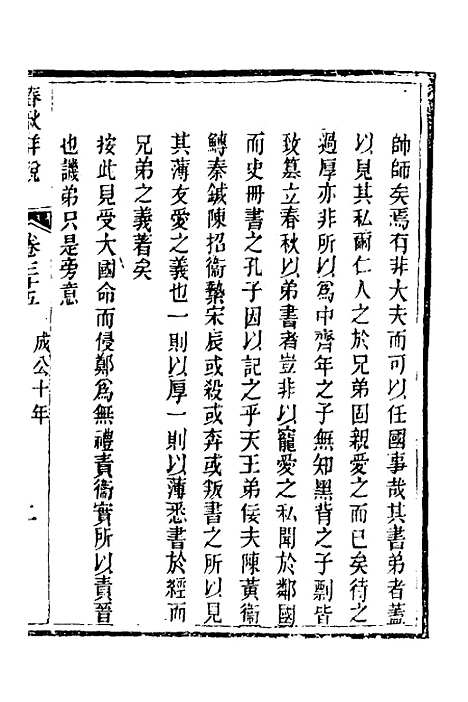 帥師矣焉有非大夫而可以任國事哉其書弟者蓋
以見其私爾仁人之於兄弟固親愛之而已矣待之
過厚亦非所以爲中齊年之子無知黑背之子剽皆
致篡立春秋以弟書者豈非以寵愛之私聞於鄰國
而史冊書之孔子因以記之乎天王弟佞夫陳黃衞
鱄秦鍼陳招衞縶宋辰或殺或奔或叛書之所以見
其薄友愛之義也一則以厚一則以薄悉書於經而
兄弟之義著矣
按此見受大國命而侵鄭爲無禮責衞實所以責晉
也譏弟只是旁意
春秋詳說
卷三十五
成公十年
二